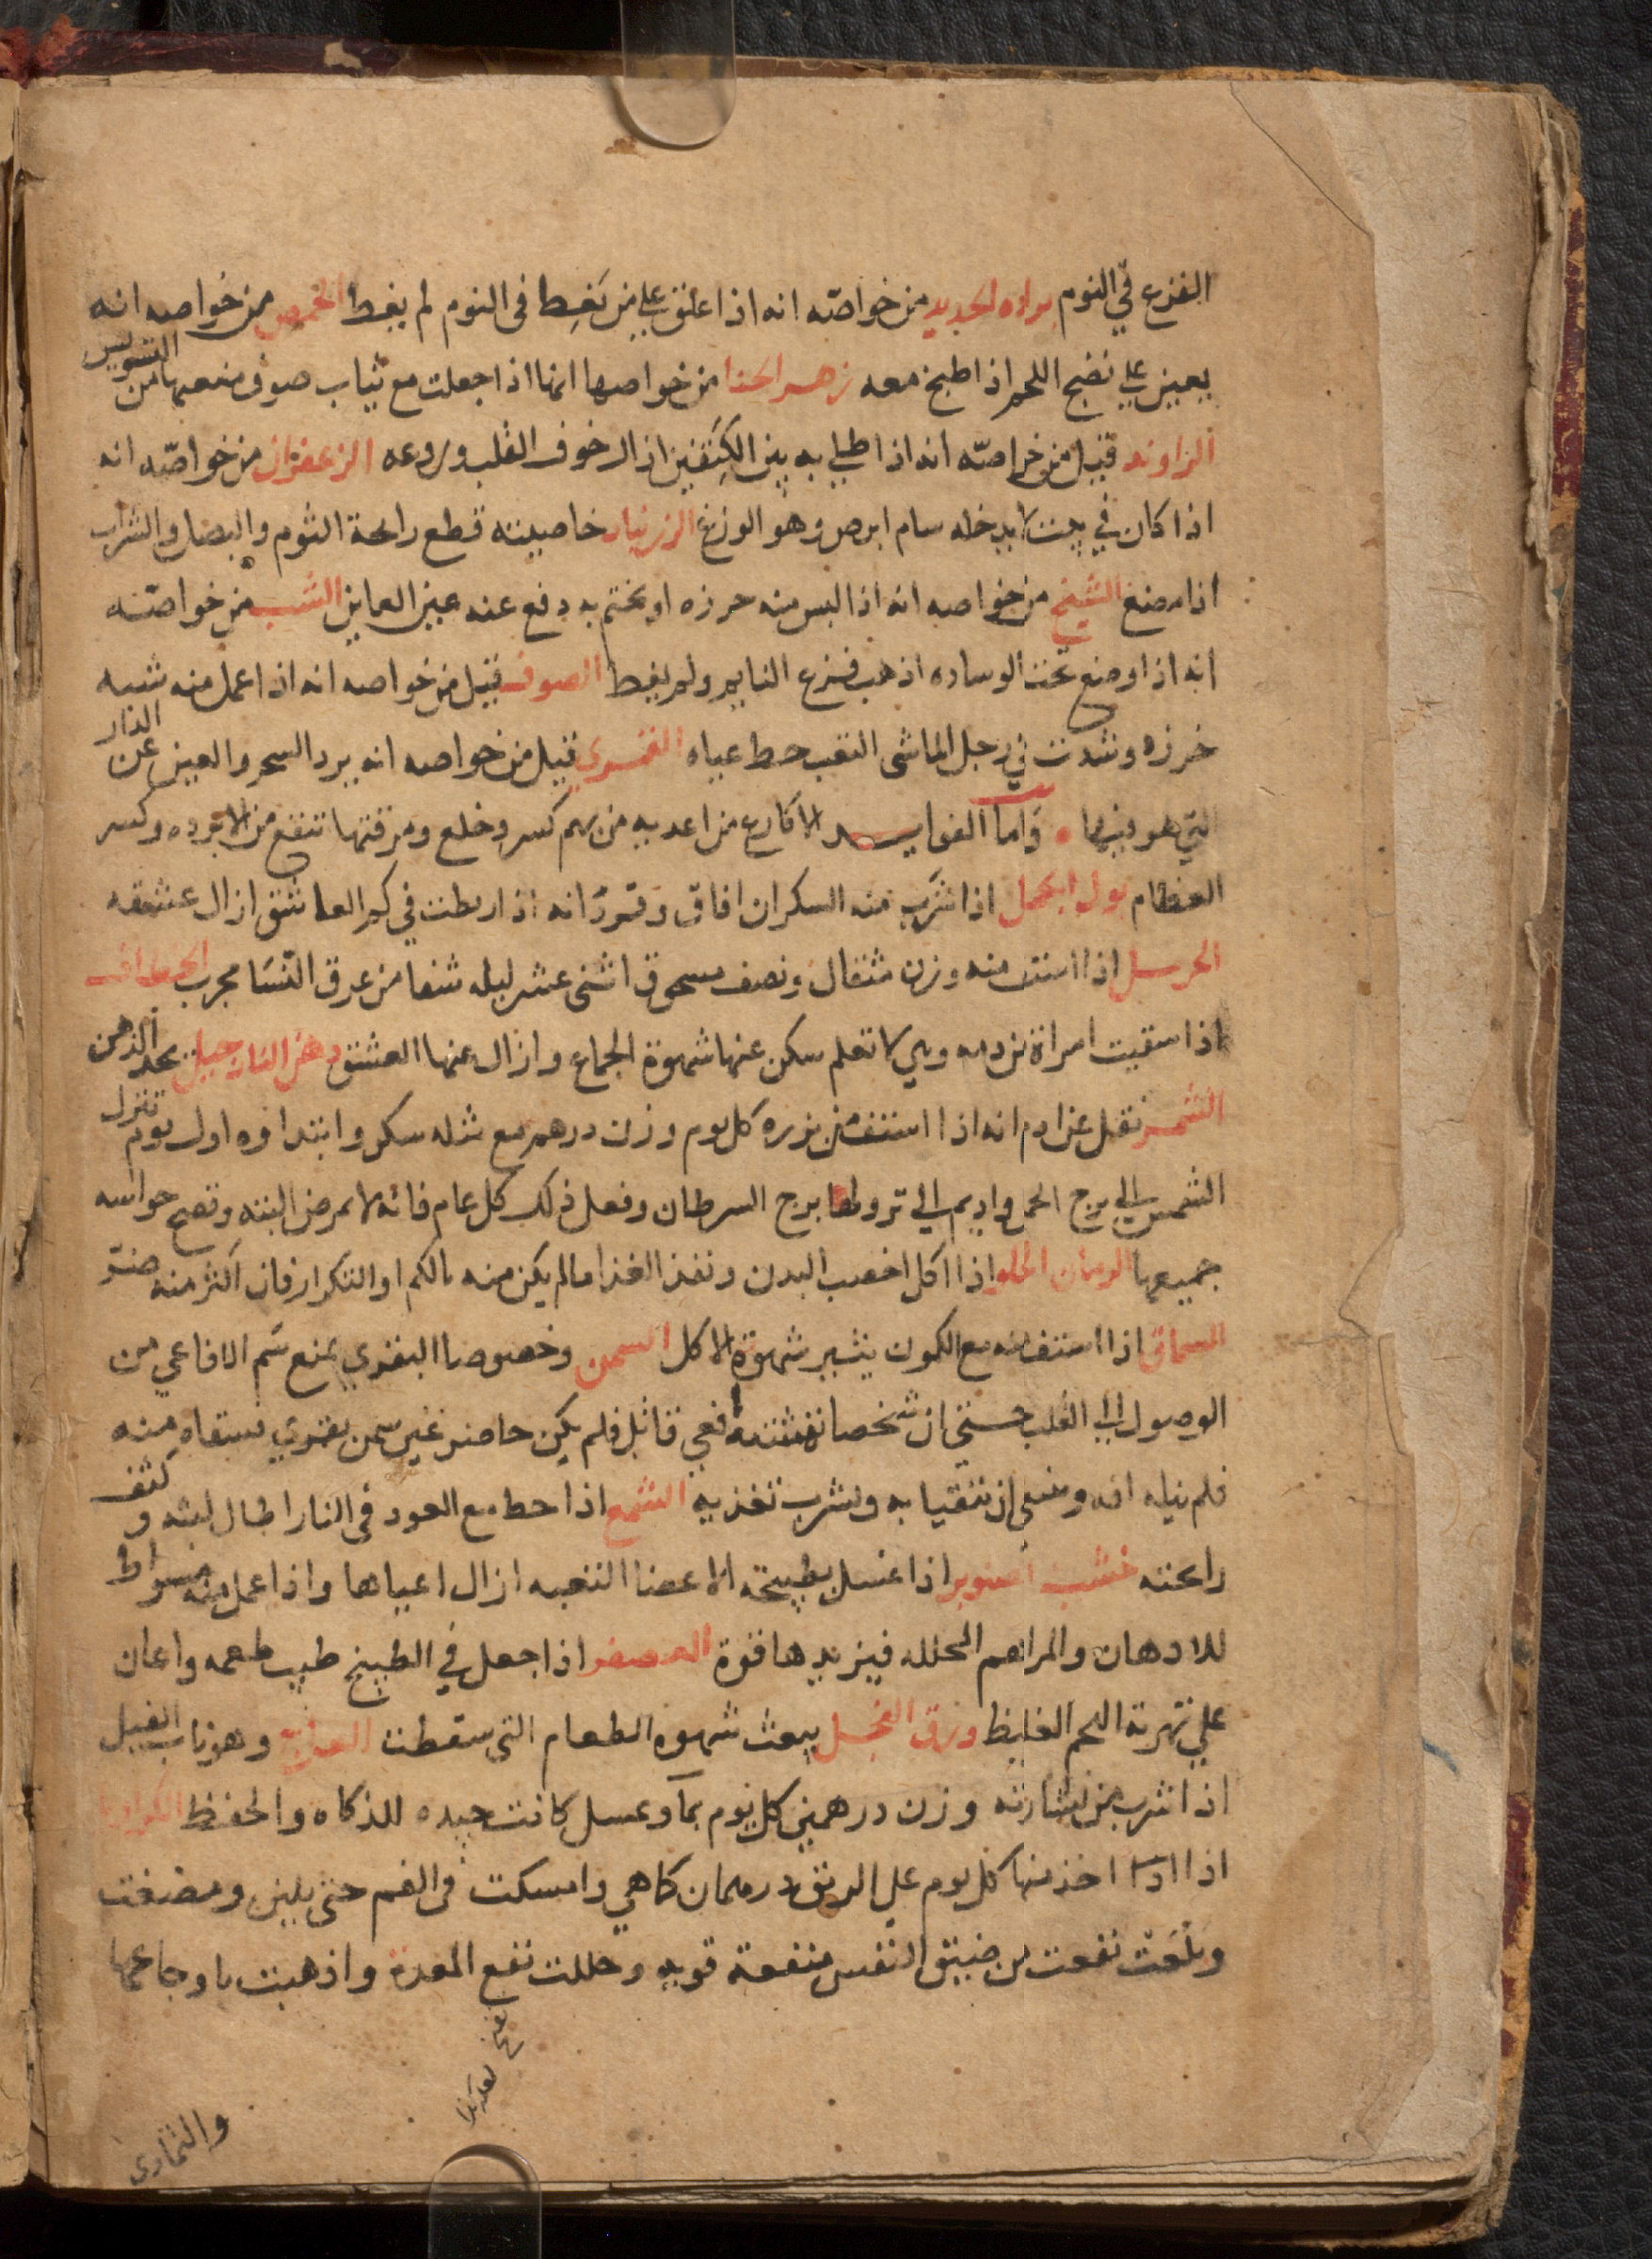 الفزع في النوم براده الحديد من خواصه انه اذا علق علي من يغط في النوم لم يغط الحمص من خواصه انه
يعين علي نضج اللحم اذا طبخ معه زهر الحنا من خواصها انها اذا جعلت مع ثياب صوف منعها من التسويس
الراوند قيل من خواصه انه اذا طلي به بين الكتفين ازال خوف القلب وروعه الزعفران من خواصه انه
اذا كان في بيت لا يدخله سام ابرص وهو الوزغ الزرنبا خاصيته قطع رائحة الثوم والبصل والشراب
اذا مضغ الشيح من خواصه انه اذا لبس منه خرزه او تختم به دفع عنه عين العاين الشب من خواصه
انه اذا وضع تحت الوساده اذهب فزع النايم ولم يغط الصوف قيل من خواصه انه اذا عمل منه شبه
خرزه وشدت في رجل الماشي التعب حط عياه القمري قيل من خواصه انه يرد السحر والعين عن الدار
التي هو فيها واما الفوايد الاكارع من اعد به من بهم كسر وخلع ومرقتها تنفع من الابرده وكسر
العظام بول الجمل اذا شرب منه السكران افاق وقرد انه اذا ربطت في كم العاشق ازال عشقه
الحرمل اذا استف منه وزن مثقال ونصف مسحوق اثني عشر ليله شفا من عرق النسا مجرب
اذا سقيت امراة من دمه وهي لا تعلم سكن عنها شهوة الجماع وازال عنها العشق دهن النارجيل يحد الذهن
الشمر نقل عن ادم انه اذا استف من بزره كل يوم وزن درهم مع مثله سكر وابتداوه اول يوم تنزل
الشمس الي برج الحمل واديم الي نزولها برج السرطان وفعل ذلك كل عام فانه لا يمرض البته وتصح حواسه
جميعها الرمان الحلو اذا اكل اخصب البدن ونفذ الغذا مالم يكن منه بالكم او التكرار فان اكثر منه ضر
السماق اذا استف منه مع الكمون يثير شهوة الاكل السمن وخصوصا البقري يمنع سم الافاعي من
الوصول الي القلب حتي ان شخصا نهشته افعي قاتل فلم يكن حاضر غير سمن بقري فسقاه منه
فلم يناله افه وينبغي ان يتقيا به ويشرب تغذيه الشمع اذا حط مع العود في النار اطال لبثه وكثف
رائحته خشب الصنوبر اذا غسل بطبيخه الاعضا التعبه ازال اعياها واذا عمل منه مسواط
للادهان والمراهم المحلله فيزيدها قوة العصفر اذا جعل في الطبيخ طيب طعمه واعان
علي تهرية اللحم الغليظ ورق الفجل يبعث شهوة الطعام التي سقطت العاج وهو ناب الفيل
اذا شرب من نشارته وزن درهمين كل يوم بماء وعسل كانت جيده للذكاه والحفظ الكراويا
اذا اخذ منها كل يوم علي الريق درهمان كما هي وامسكت في الفم حتي يلين ومضغت
وبلعت نفعت من ضيق النفس منفعة قويه وحللت نفخ المعدة واذهبت باوجاعها
والتمادي